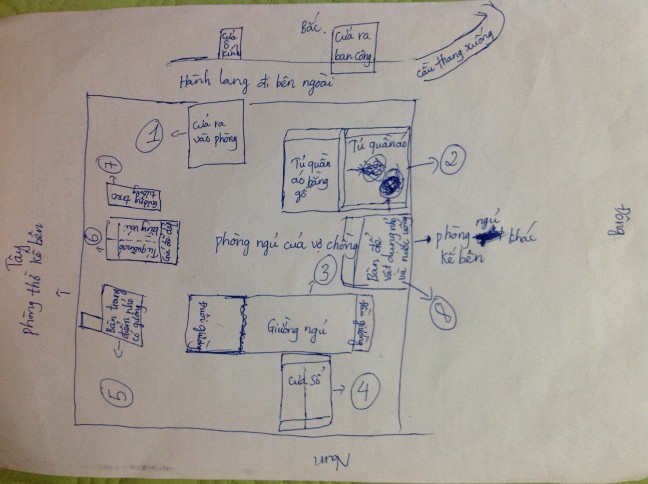 Bắc.
Cửa
sổ
kính
Cửa ra
ban công
cầu thang xuống
Hành lang đi bên ngoài
Cửa ra
vào phòng
1
Tủ quần
áo bằng
gỗ
Tủ quần áo
2
7
Gương treo
tường
6
Tủ quần áo
phòng ngủ của vợ chồng
3
Bàn để
vật dụng nhỏ
và nước uống
phòng ngủ khác
kế bên
8
Đông
Tây
phòng thờ kế bên
Bàn trang
điểm nhỏ
có gương
5
Đuôi giường
Giường ngủ
Đầu giường
Cửa sổ
4
Nam